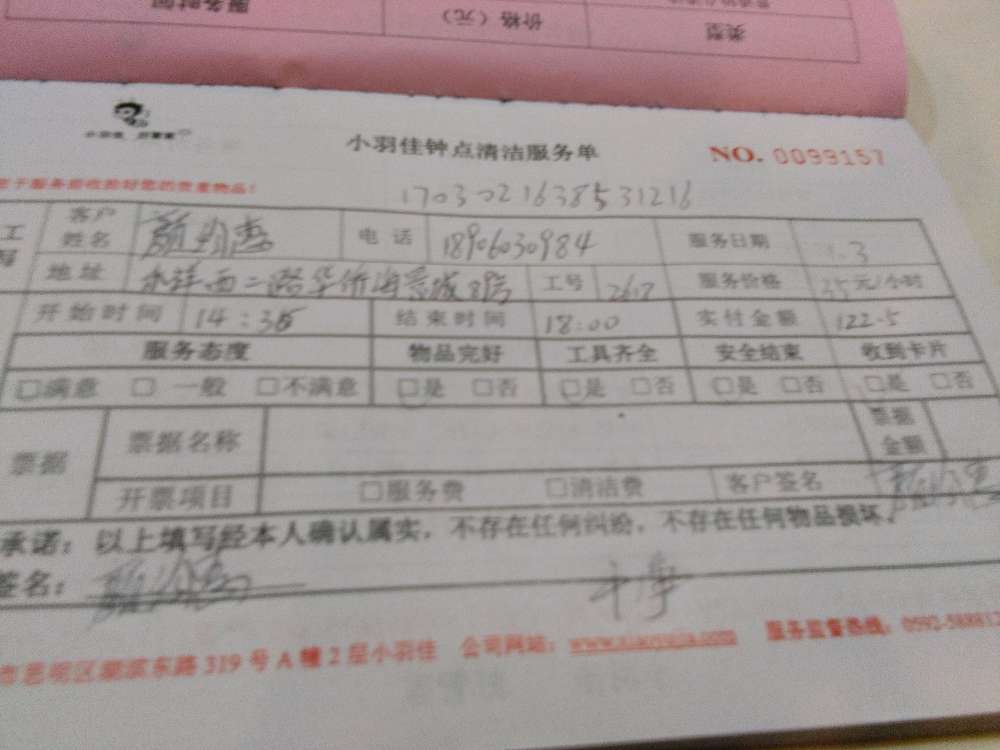 服务时间 价格（元） 类型
小羽佳
小羽佳钟点清洁服务单 NO. 0099157
1703021638531216
客户姓名 电话 18906030984 服务日期 3
地址 二路华侨海景城 工号 服务价格 35元/小时
开始时间 14:35 结束时间 18:00 实付金额 122.5
服务态度 物品完好 工具齐全 安全结束 收到卡片
□满意 □一般 □不满意 □是 □否 □是 □否 □是 □否 □是 □否
票据 票据名称 票据金额
开票项目 □服务费 □清洁费 客户签名
承诺：以上填写经本人确认属实，不存在任何纠纷，不存在任何物品损坏。
签名：
市思明区湖滨东路319号A幢2层小羽佳 公司网站：www.xiaoyujia.com 服务监督热线：0592-588812